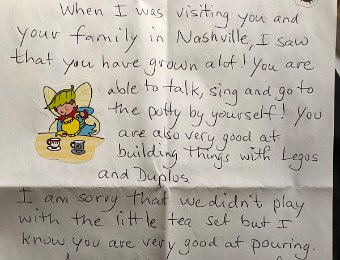 When I was visiting you and
your family in Nashville, I saw
that you have grown alot! You are
able to talk, sing and go to
the potty by yourself! You
are also very good at
building things with Legos
and Duplos
I am sorry that we didn't play
with the little tea set but I
know you are very good at pouring.